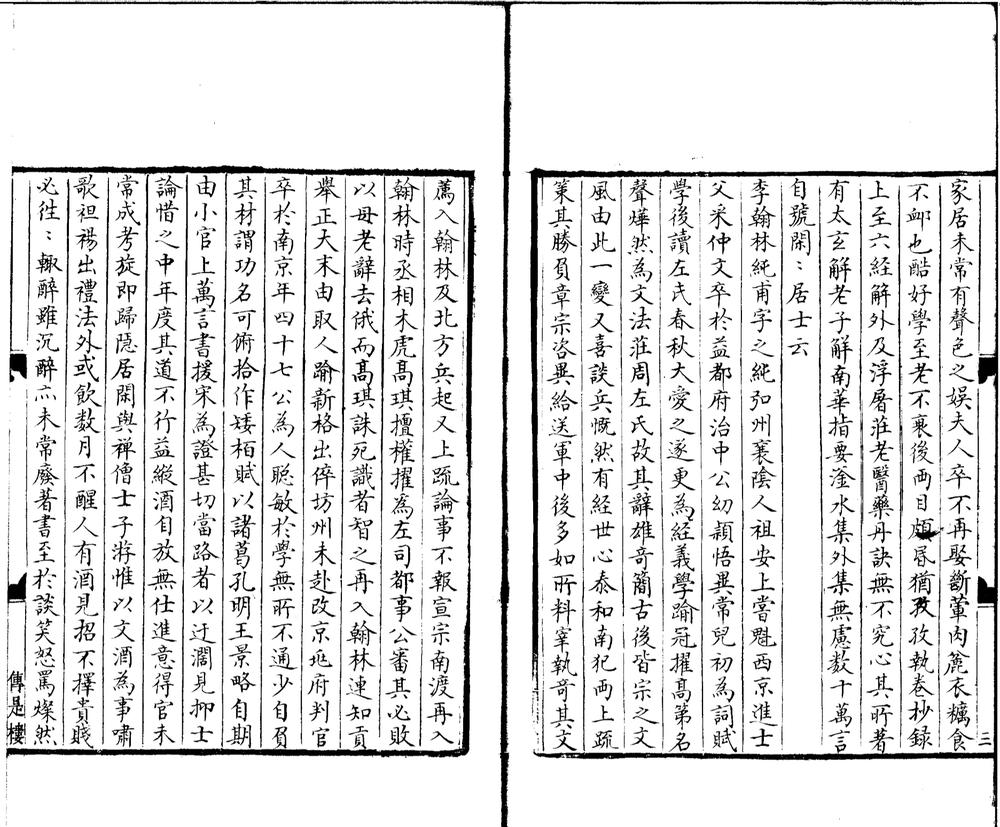 家居未常有聲色之娛夫人卒不再娶斷葷肉麄衣糲食
不衈也酷好學至老不衰後两目頗昬猶孜孜執卷抄録
上至六經解外及浮屠莊老醫藥丹訣無不究心其所著
有太玄解老子解南華指要滏水集外集無慮数十萬言
自號閑〻居士云
李翰林純甫字之純弘州襄陰人祖安上嘗魁西京進士
父采仲文卒於益都府治中公幼頴悟異常兒初為詞賦
學後讀左氏春秋大愛之遂更為經義學踰冠擢髙第名
聲燁然為文法莊周左氏故其辭雄竒簡古後皆宗之文
風由此一變又喜談兵慨然有経世心泰和南犯两上疏
䇿其勝負章宗咨異給送軍中後多如所料宰執竒其文
薦入翰林及北方兵起又上疏論事不報宣宗南渡再入
翰林時丞相术虎髙琪擅權擢為左司都事公審其必敗
以母老辭去俄而髙琪誅死識者智之再入翰林連知貢
舉正大末由取人踰新格出倅坊州未赴改京兆府判官
卒於南京年四十七公為人聡敏於學無所不通少自負
其材謂功名可俯拾作矮栢賦以諸葛孔明王景略自期
由小官上萬言書援宋為證甚切當路者以迂濶見抑士
論惜之中年度其道不行益縱酒自放無仕進意得官未
常成考旋即歸隠居閑與禅僧士子游惟以文酒為事嘯
歌袒裼出禮法外或飲数月不醒人有酒見招不擇貴賤
必徃〻輙醉雖沉醉亦未常廢著書至於談笑怒罵燦然
三
傳是樓